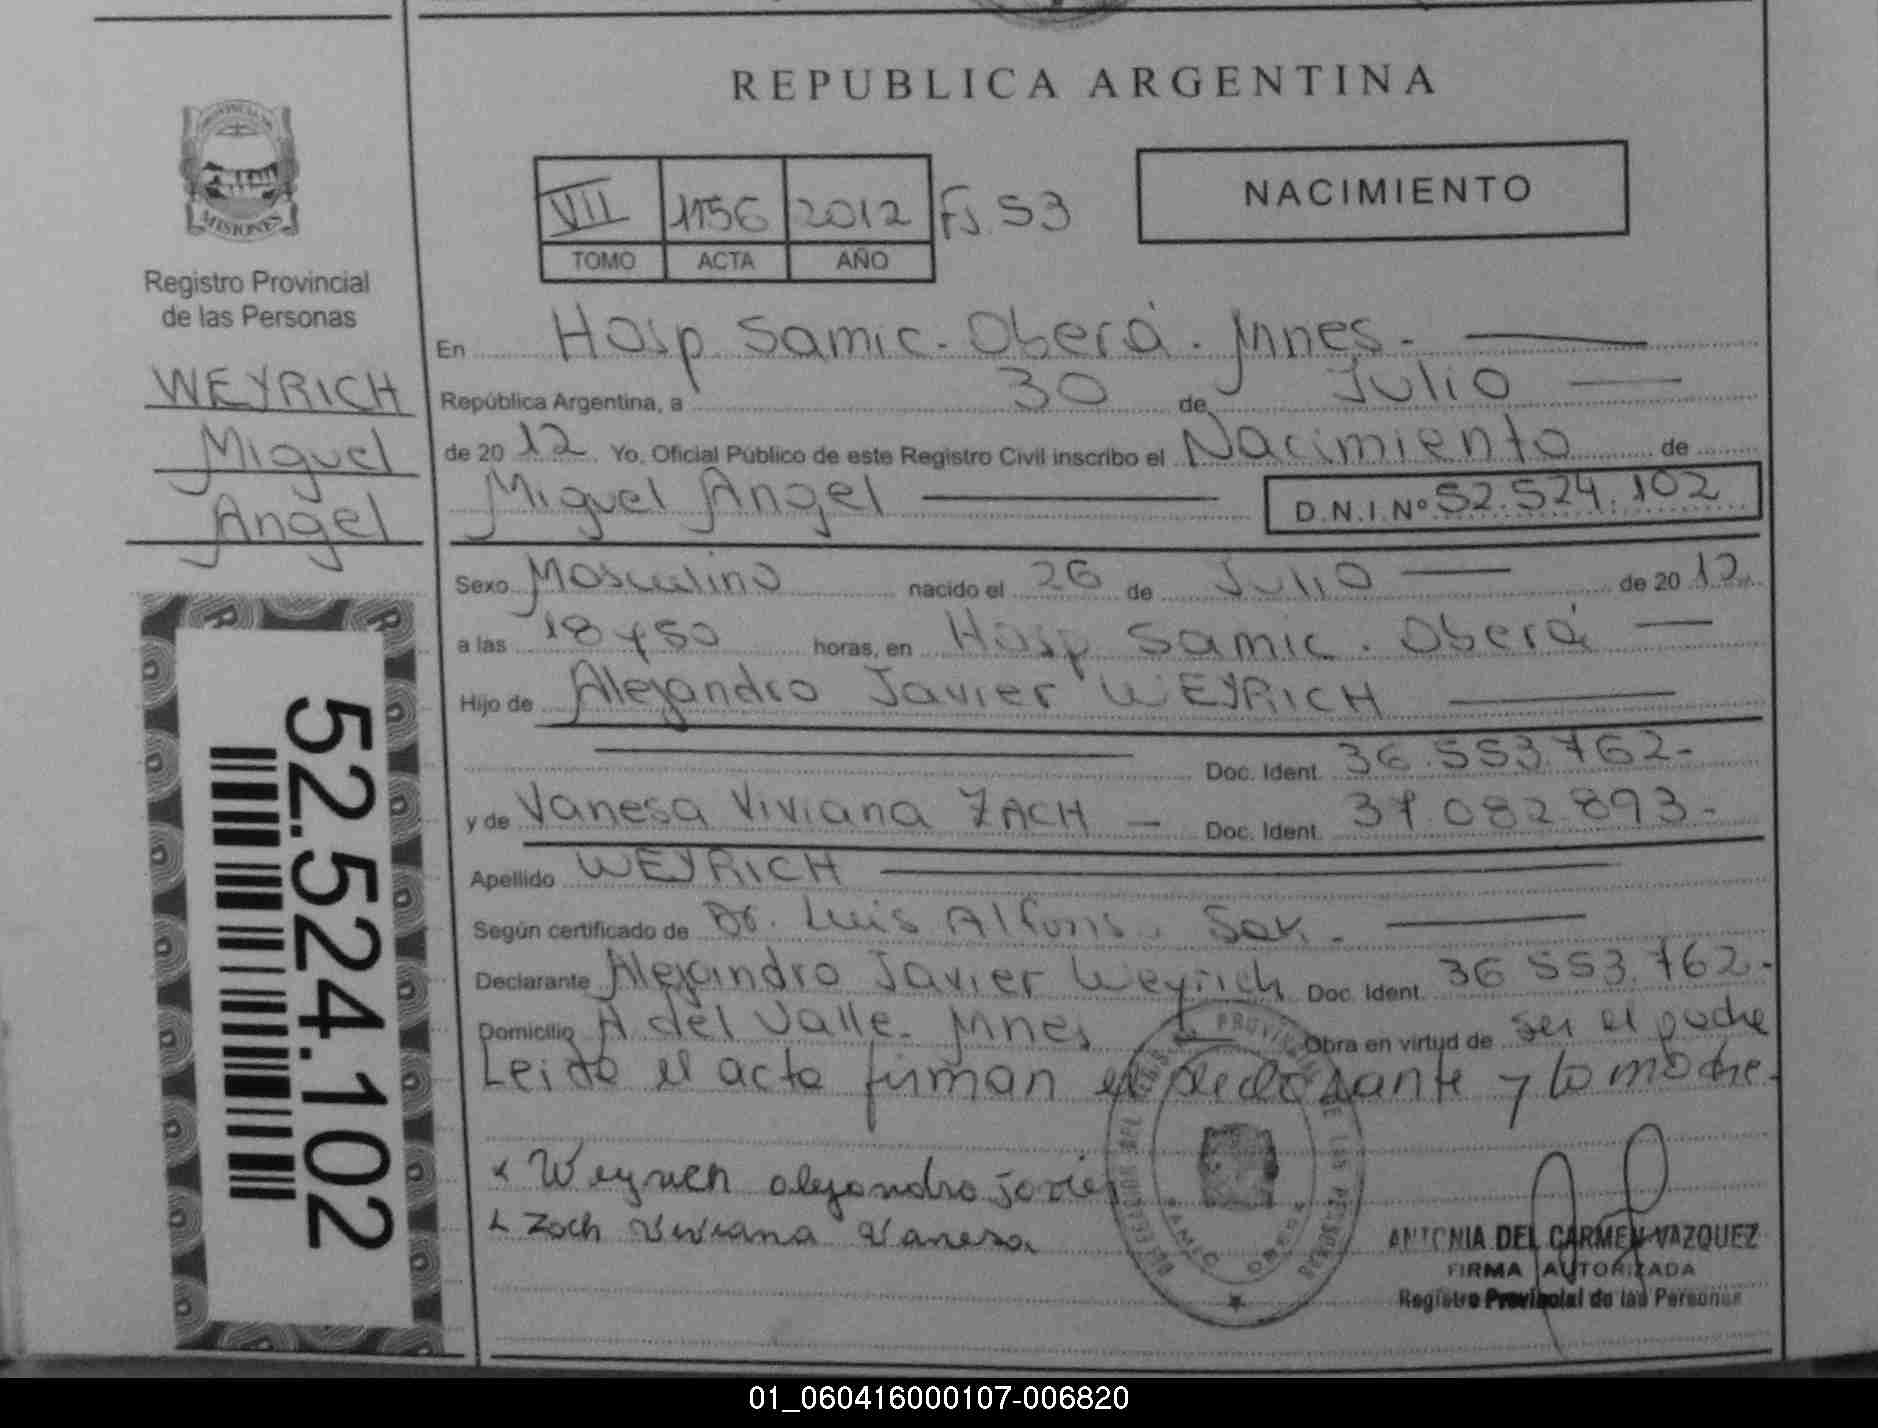 REPUBLICA ARGENTINA
MISIONES
Registro Provincial
de las Personas
WEYRICH
Miguel
Angel
52.524.102
VII 1156 2012 FJ. 53
TOMO ACTA AÑO
NACIMIENTO
En Hosp Samic. Oberá. Mnes.
República Argentina, a 30 de Julio
de 2012 Yo, Oficial Público de este Registro Civil inscribo el Nacimiento de
Miguel Angel D.N.I.Nº 52.524.102
Sexo Masculino nacido el 26 de Julio de 2012
a las 18 y 50 horas, en Hosp Samic. Oberá
Hijo de Alejandro Javier WEYRICH
Doc. Ident. 36.553.762-
y de Vanesa Viviana ZACH Doc. Ident. 37.082.893-
Apellido WEYRICH
Según certificado de Dr. Luis Alfons.
Declarante Alejandro Javier Weyrich Doc. Ident. 36 553.762-
Domicilio A del Valle. Mnes Obra en virtud de ser el padre
Leida el acta firman el declarante y la madre.
x Weyrich alejandro javier
x Zach Viviana Vanesa
ANTONIA DEL CARMEN VAZQUEZ
FIRMA AUTORIZADA
Registro Provincial de las Personas
01_060416000107-006820